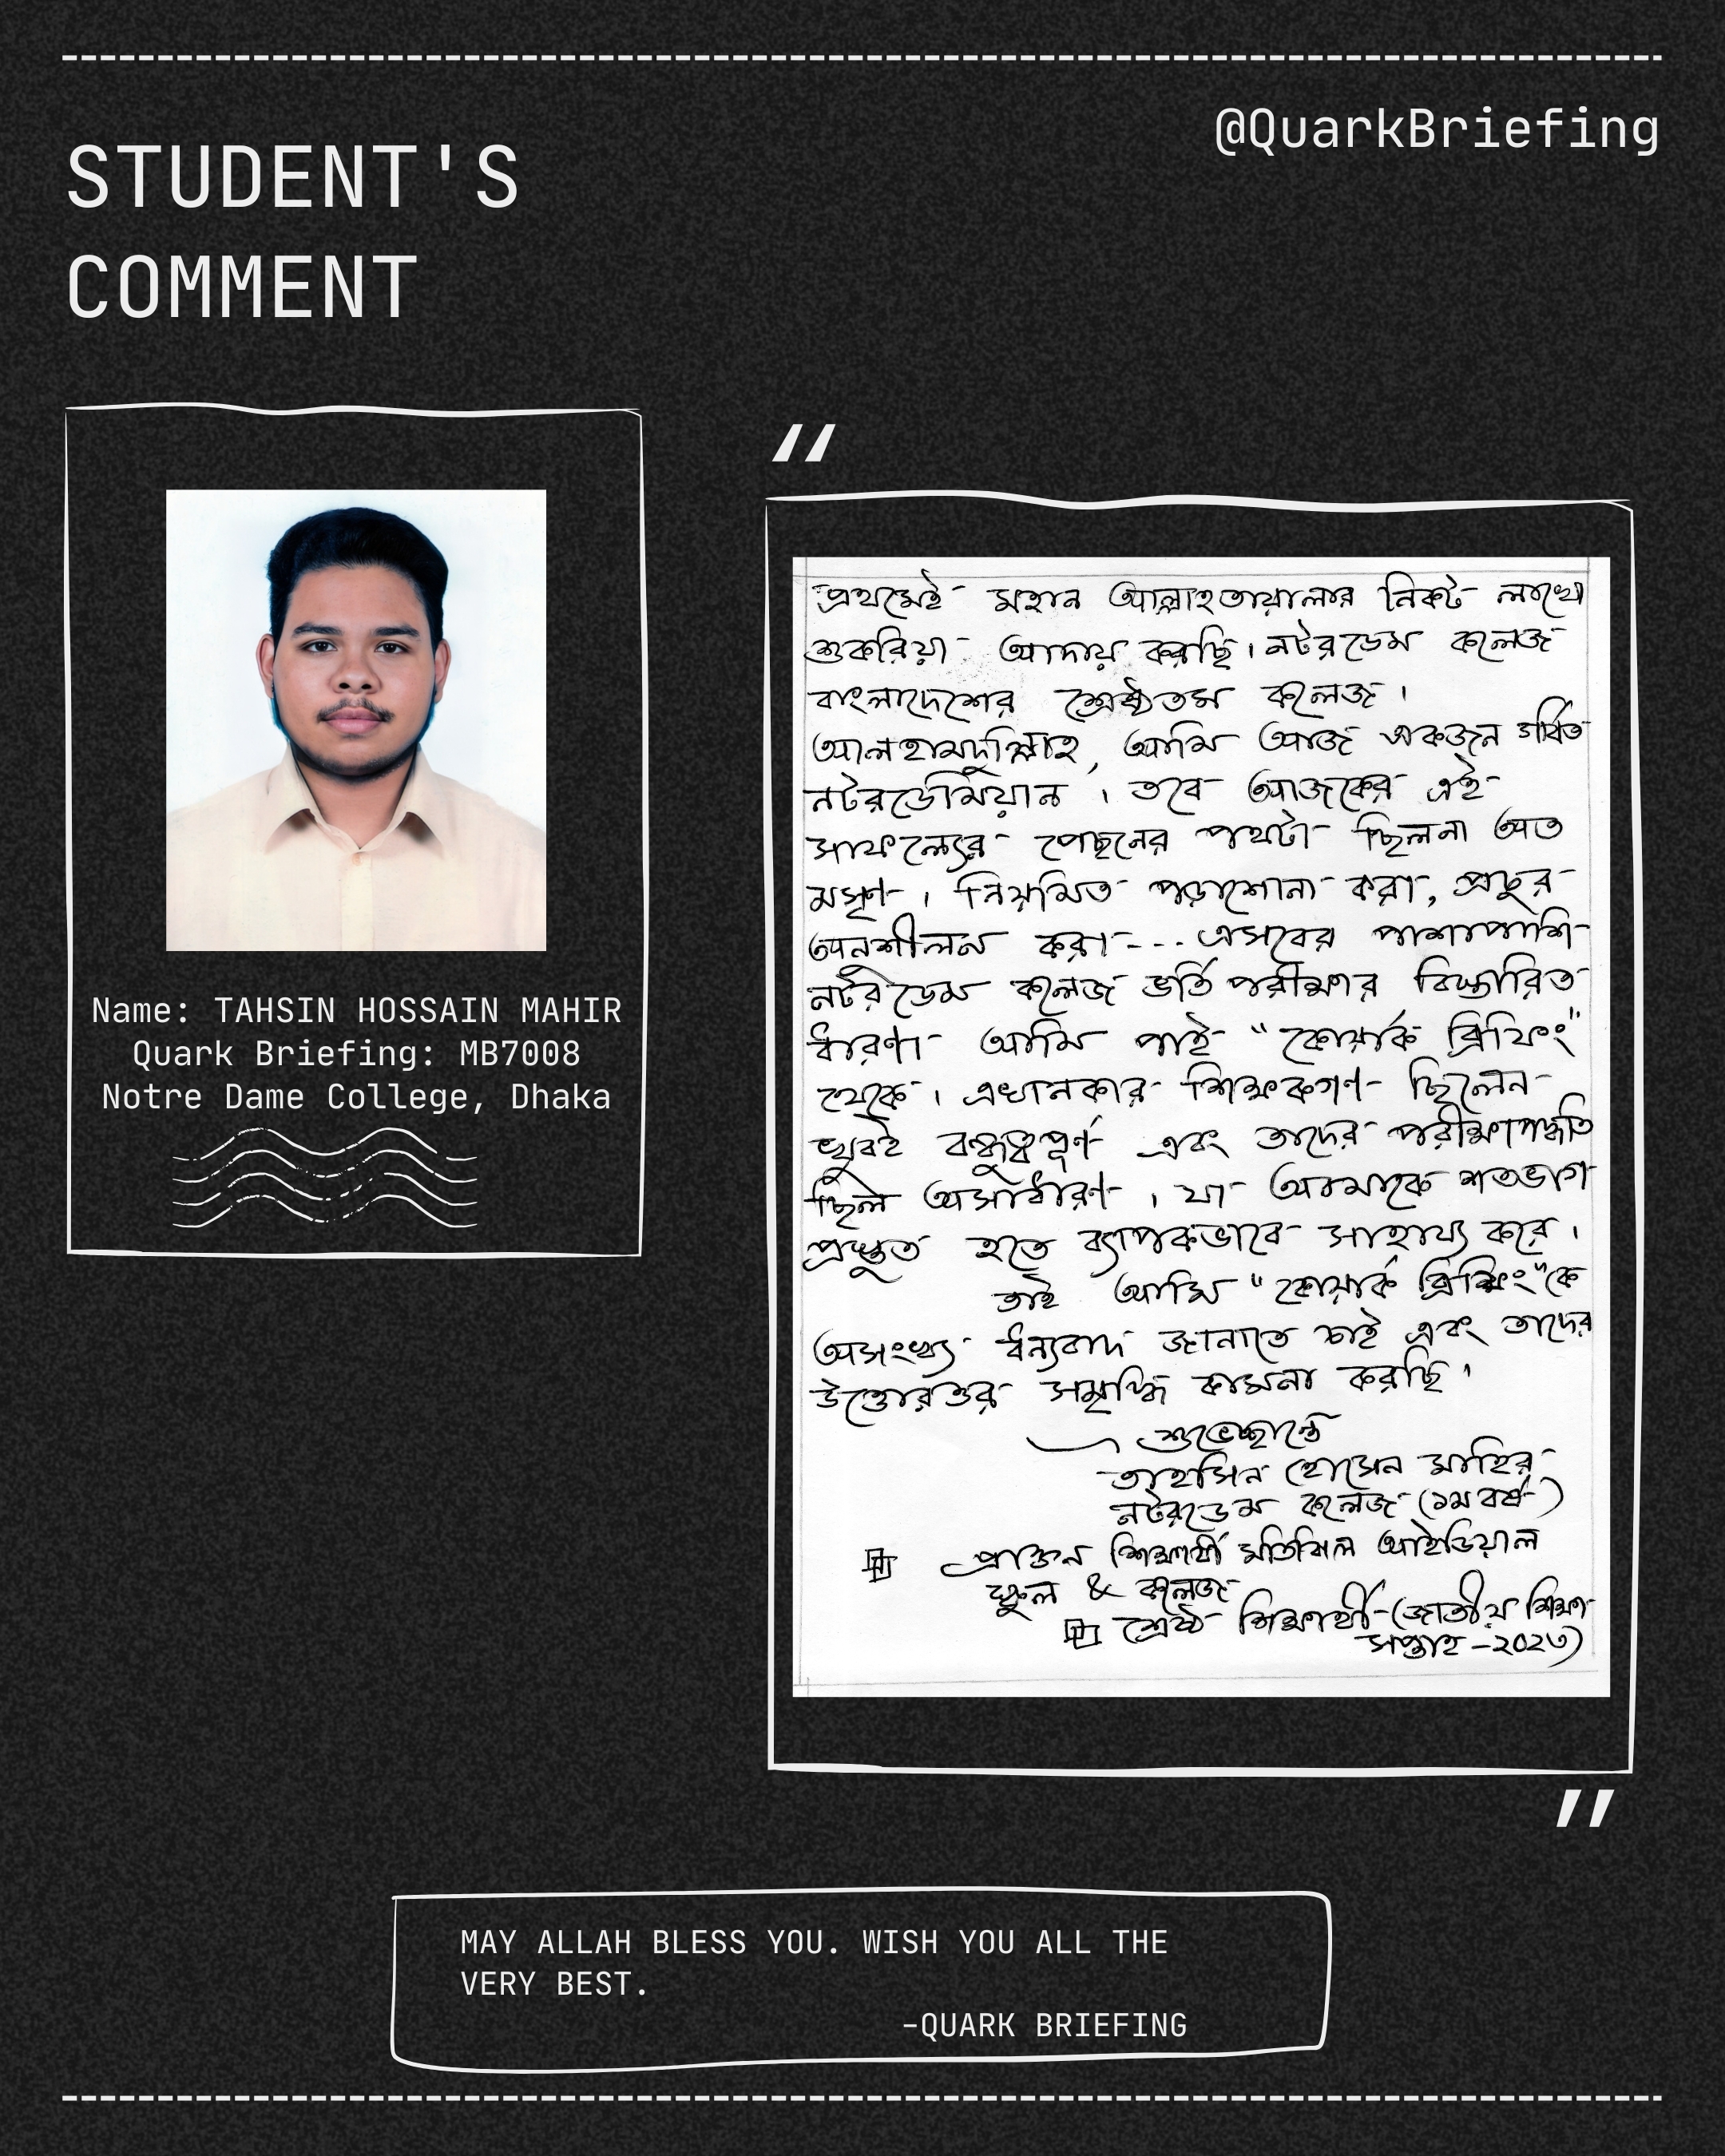 @QuarkBriefing
STUDENT'S
COMMENT
Name: TAHSIN HOSSAIN MAHIR
Quark Briefing: MB7008
Notre Dame College, Dhaka
“
প্রথমেই মহান আল্লাহতায়ালার নিকট লাখো
শুকরিয়া আদায় করছি। নটরডেম কলেজ
বাংলাদেশের শ্রেষ্ঠতম কলেজ।
আলহামদুলিল্লাহ, আমি আজ একজন গর্বিত
নটরডেমিয়ান। তবে আজকের এই
সাফল্যের পেছনের পথটা ছিলনা অত
মসৃণ। নিয়মিত পড়াশোনা করা, প্রচুর
অনশীলন করা--- এসবের পাশাপাশি
নটরডেম কলেজ ভর্তি পরীক্ষার বিস্তারিত
ধারণা আমি পাই “কোয়ার্ক ব্রিফিং”
থেকে। এখানকার শিক্ষকগণ ছিলেন
খুবই বন্ধুত্বপূর্ণ এবং তাদের পরীক্ষাপদ্ধতি
ছিল অসাধারণ। যা আমাকে শতভাগ
প্রস্তুত হতে ব্যাপকভাবে সাহায্য করে।
তাই আমি “কোয়ার্ক ব্রিফিং”কে
অসংখ্য ধন্যবাদ জানাতে চাই এবং তাদের
উত্তোরত্তর সমৃদ্ধি কামনা করছি।
শুভেচ্ছান্তে
তাহসিন হোসেন মাহির
নটরডেম কলেজ (১ম বর্ষ)
প্রাক্তন শিক্ষার্থী মতিঝিল আইডিয়াল
স্কুল & কলেজ
শ্রেষ্ঠ শিক্ষার্থী (জাতীয় শিক্ষা
সপ্তাহ -২০২৩)
”
MAY ALLAH BLESS YOU. WISH YOU ALL THE
VERY BEST.
-QUARK BRIEFING